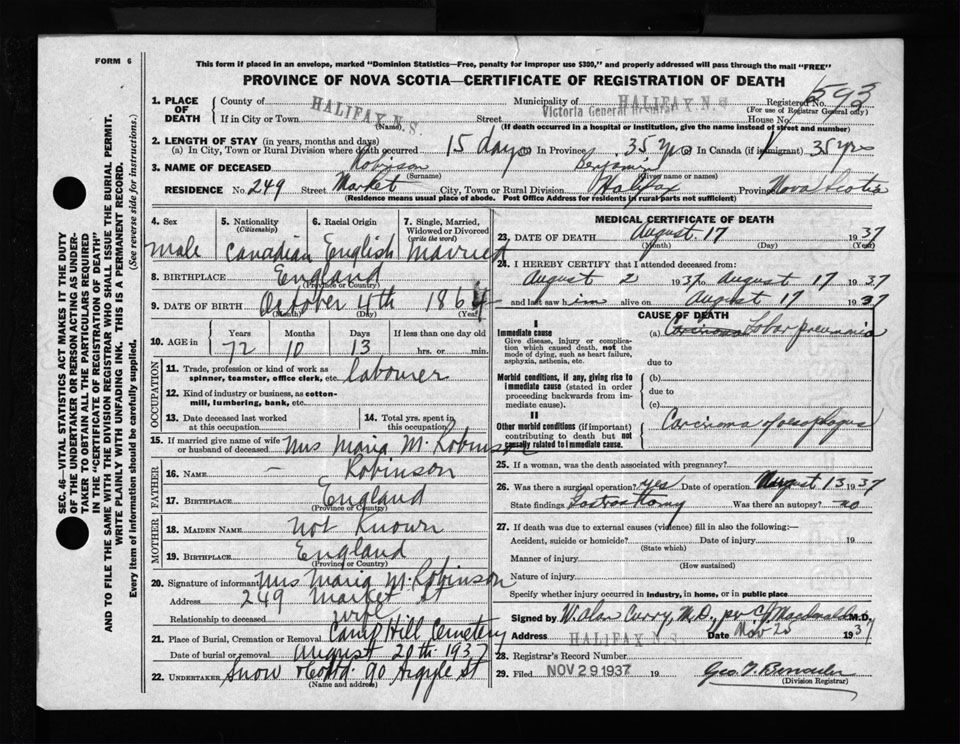 FORM 6
This form if placed in an envelope, marked "Dominion Statistics—Free, penalty for improper use $300," and properly addressed will pass through the mail "FREE"
PROVINCE OF NOVA SCOTIA—CERTIFICATE OF REGISTRATION OF DEATH
1. PLACE OF DEATH County of Municipality of HALIFAX N.S. Registered No. 593
(For use of Registrar General only)
If in City or Town HALIFAX N.S. Street Victoria General Hospital House No.
(Name) (If death occurred in a hospital or institution, give the name instead of street and number)
2. LENGTH OF STAY (in years, months and days)
(a) In City, Town or Rural Division where death occurred 15 days In Province 35 yrs In Canada (if immigrant) 35 yrs
3. NAME OF DECEASED Robinson Benjamin
(Surname) (Given name or names)
RESIDENCE No. 249 Street Market City, Town or Rural Division Halifax Province Nova Scotia
(Residence means usual place of abode. Post Office Address for residents in rural parts not sufficient)
4. Sex 5. Nationality (Citizenship) 6. Racial Origin 7. Single, Married, Widowed or Divorced (write the word)
Male Canadian English Married
8. BIRTHPLACE England
(Province or County)
9. DATE OF BIRTH October 4th 1864
(Month) (Day) (Year)
10. AGE in Years Months Days If less than one day old
72 10 13 hrs. or min.
OCCUPATION
11. Trade, profession or kind of work as spinner, teamster, office clerk, etc. labourer
12. Kind of industry or business, as cotton-mill, lumbering, bank, etc.
13. Date deceased last worked at this occupation
14. Total yrs. spent in this occupation
15. If married give name of wife or husband of deceased Mrs Maria M. Robinson
FATHER
16. Name — Robinson
17. Birthplace England
(Province or County)
MOTHER
18. Maiden Name Not Known
19. Birthplace England
(Province or County)
20. Signature of informant Mrs Maria M. Robinson
Address 249 Market St
Relationship to deceased wife
21. Place of Burial, Cremation or Removal Camp Hill Cemetery
Date of burial or removal August 20th 1937
22. UNDERTAKER Snow 90 Argyle St
(Name and address)
MEDICAL CERTIFICATE OF DEATH
23. DATE OF DEATH August 17 1937
(Month) (Day) (Year)
24. I HEREBY CERTIFY that I attended deceased from:
August 2 1937 to August 17 1937
and last saw him alive on August 17 1937
CAUSE OF DEATH
I
Immediate cause (a) Carcinoma Lobar pneumonia
Give disease, injury or complication which caused death, not the mode of dying, such as heart failure, asphyxia, asthenia, etc.
due to
Morbid conditions, if any, giving rise to immediate cause (stated in order proceeding backwards from immediate cause).
(b)
due to
(c)
II
Other morbid conditions (if important) contributing to death but not causally related to immediate cause. Carcinoma of oesophagus
25. If a woman, was the death associated with pregnancy?
26. Was there a surgical operation? yes Date of operation August 13 1937
State findings Gastrostomy Was there an autopsy? no
27. If death was due to external causes (violence) fill in also the following:—
Accident, suicide or homicide? Date of injury 19
(State which)
Manner of injury
(How sustained)
Nature of injury
Specify whether injury occurred in industry, in home, or in public place
Signed by W. Alan Curry, M.D., M.D.
Address HALIFAX N.S. Date Nov 25 1937
28. Registrar's Record Number
29. Filed NOV 29 1937 19
(Division Registrar)
SEC. 46—VITAL STATISTICS ACT MAKES IT THE DUTY
OF THE UNDERTAKER OR PERSON ACTING AS UNDERTAKER
TO OBTAIN ALL THE PARTICULARS REQUIRED
IN THE "CERTIFICATE OF REGISTRATION OF DEATH"
AND TO FILE THE SAME WITH THE DIVISION REGISTRAR WHO SHALL ISSUE THE BURIAL PERMIT.
WRITE PLAINLY WITH UNFADING INK. THIS IS A PERMANENT RECORD.
Every item of information should be carefully supplied. (See reverse side for instructions.)